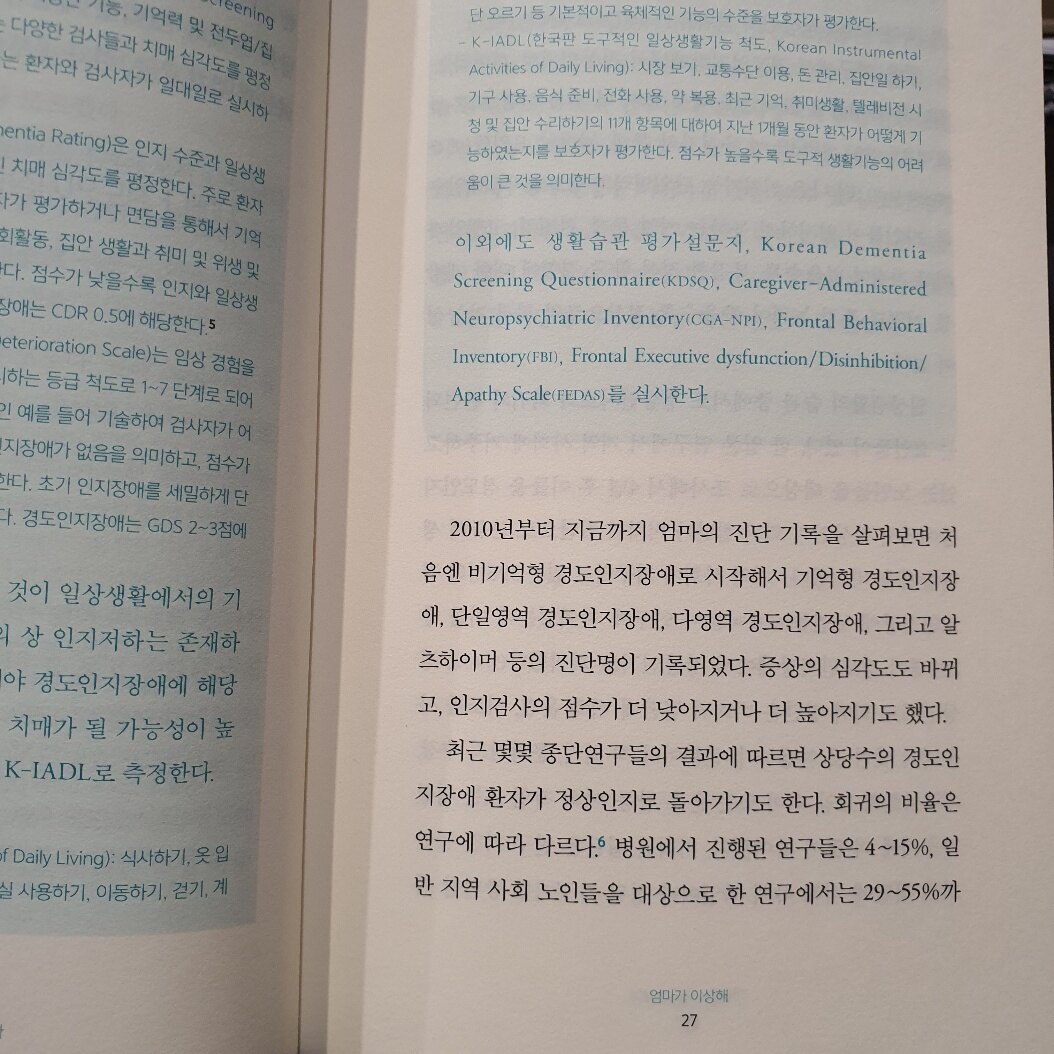 Screening
기능, 기억력 및 전두엽/집
다양한 검사들과 치매 심각도를 평정
는 환자와 검사자가 일대일로 실시하
mentia Rating)은 인지 수준과 일상생
치매 심각도를 평정한다. 주로 환자
자가 평가하거나 면담을 통해서 기억
회활동, 집안 생활과 취미 및 위생 및
한다. 점수가 낮을수록 인지와 일상생
장애는 CDR 0.5에 해당한다.5
Deterioration Scale)는 임상 경험을
하는 등급 척도로 1~7 단계로 되어
인 예를 들어 기술하여 검사자가 어
인지장애가 없음을 의미하고, 점수가
한다. 초기 인지장애를 세밀하게 단
다. 경도인지장애는 GDS 2~3점에
것이 일상생활에서의 기
의 상 인지저하는 존재하
야 경도인지장애에 해당
치매가 될 가능성이 높
K-IADL로 측정한다.
of Daily Living): 식사하기, 옷 입
실 사용하기, 이동하기, 걷기, 계
단 오르기 등 기본적이고 육체적인 기능의 수준을 보호자가 평가한다.
- K-IADL(한국판 도구적인 일상생활기능 척도, Korean Instrumental
Activities of Daily Living): 시장 보기, 교통수단 이용, 돈 관리, 집안일 하기,
기구 사용, 음식 준비, 전화 사용, 약 복용, 최근 기억, 취미생활, 텔레비전 시
청 및 집안 수리하기의 11개 항목에 대하여 지난 1개월 동안 환자가 어떻게 기
능하였는지를 보호자가 평가한다. 점수가 높을수록 도구적 생활기능의 어려
움이 큰 것을 의미한다.
이외에도 생활습관 평가설문지, Korean Dementia
Screening Questionnaire(KDSQ), Caregiver-Administered
Neuropsychiatric Inventory(CGA-NPI), Frontal Behavioral
Inventory(FBI), Frontal Executive dysfunction/Disinhibition/
Apathy Scale(FEDAS)를 실시한다.
2010년부터 지금까지 엄마의 진단 기록을 살펴보면 처
음엔 비기억형 경도인지장애로 시작해서 기억형 경도인지장
애, 단일영역 경도인지장애, 다영역 경도인지장애, 그리고 알
츠하이머 등의 진단명이 기록되었다. 증상의 심각도도 바뀌
고, 인지검사의 점수가 더 낮아지거나 더 높아지기도 했다.
최근 몇몇 종단연구들의 결과에 따르면 상당수의 경도인
지장애 환자가 정상인지로 돌아가기도 한다. 회귀의 비율은
연구에 따라 다르다.6 병원에서 진행된 연구들은 4~15%, 일
반 지역 사회 노인들을 대상으로 한 연구에서는 29~55%까
엄마가 이상해
27